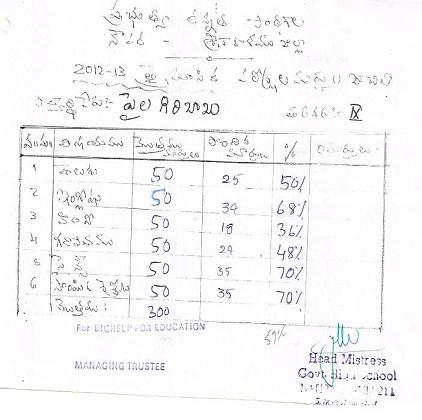 ప్రభుత్వ ఉన్నత పాఠశాల
శ్రీకాకుళము జిల్లా
2012-13 త్రైమాసిక పరీక్షల మార్కుల జాబితా
విద్యార్థి పేరు: పైల గిరిబాబు తరగతి: IX
విషయము మొత్తము మార్కులు పొందిన మార్కులు %
1 తెలుగు 50 25 50%
2 ఇంగ్లీషు 50 34 68%
3 హిందీ 50 18 36%
4 గణితము 50 24 48%
5 సైన్స్ 50 35 70%
6 50 35 70%
మొత్తము: 300
For BIGHELP FOR EDUCATION
MANAGING TRUSTEE
Head Mistress
Govt High School